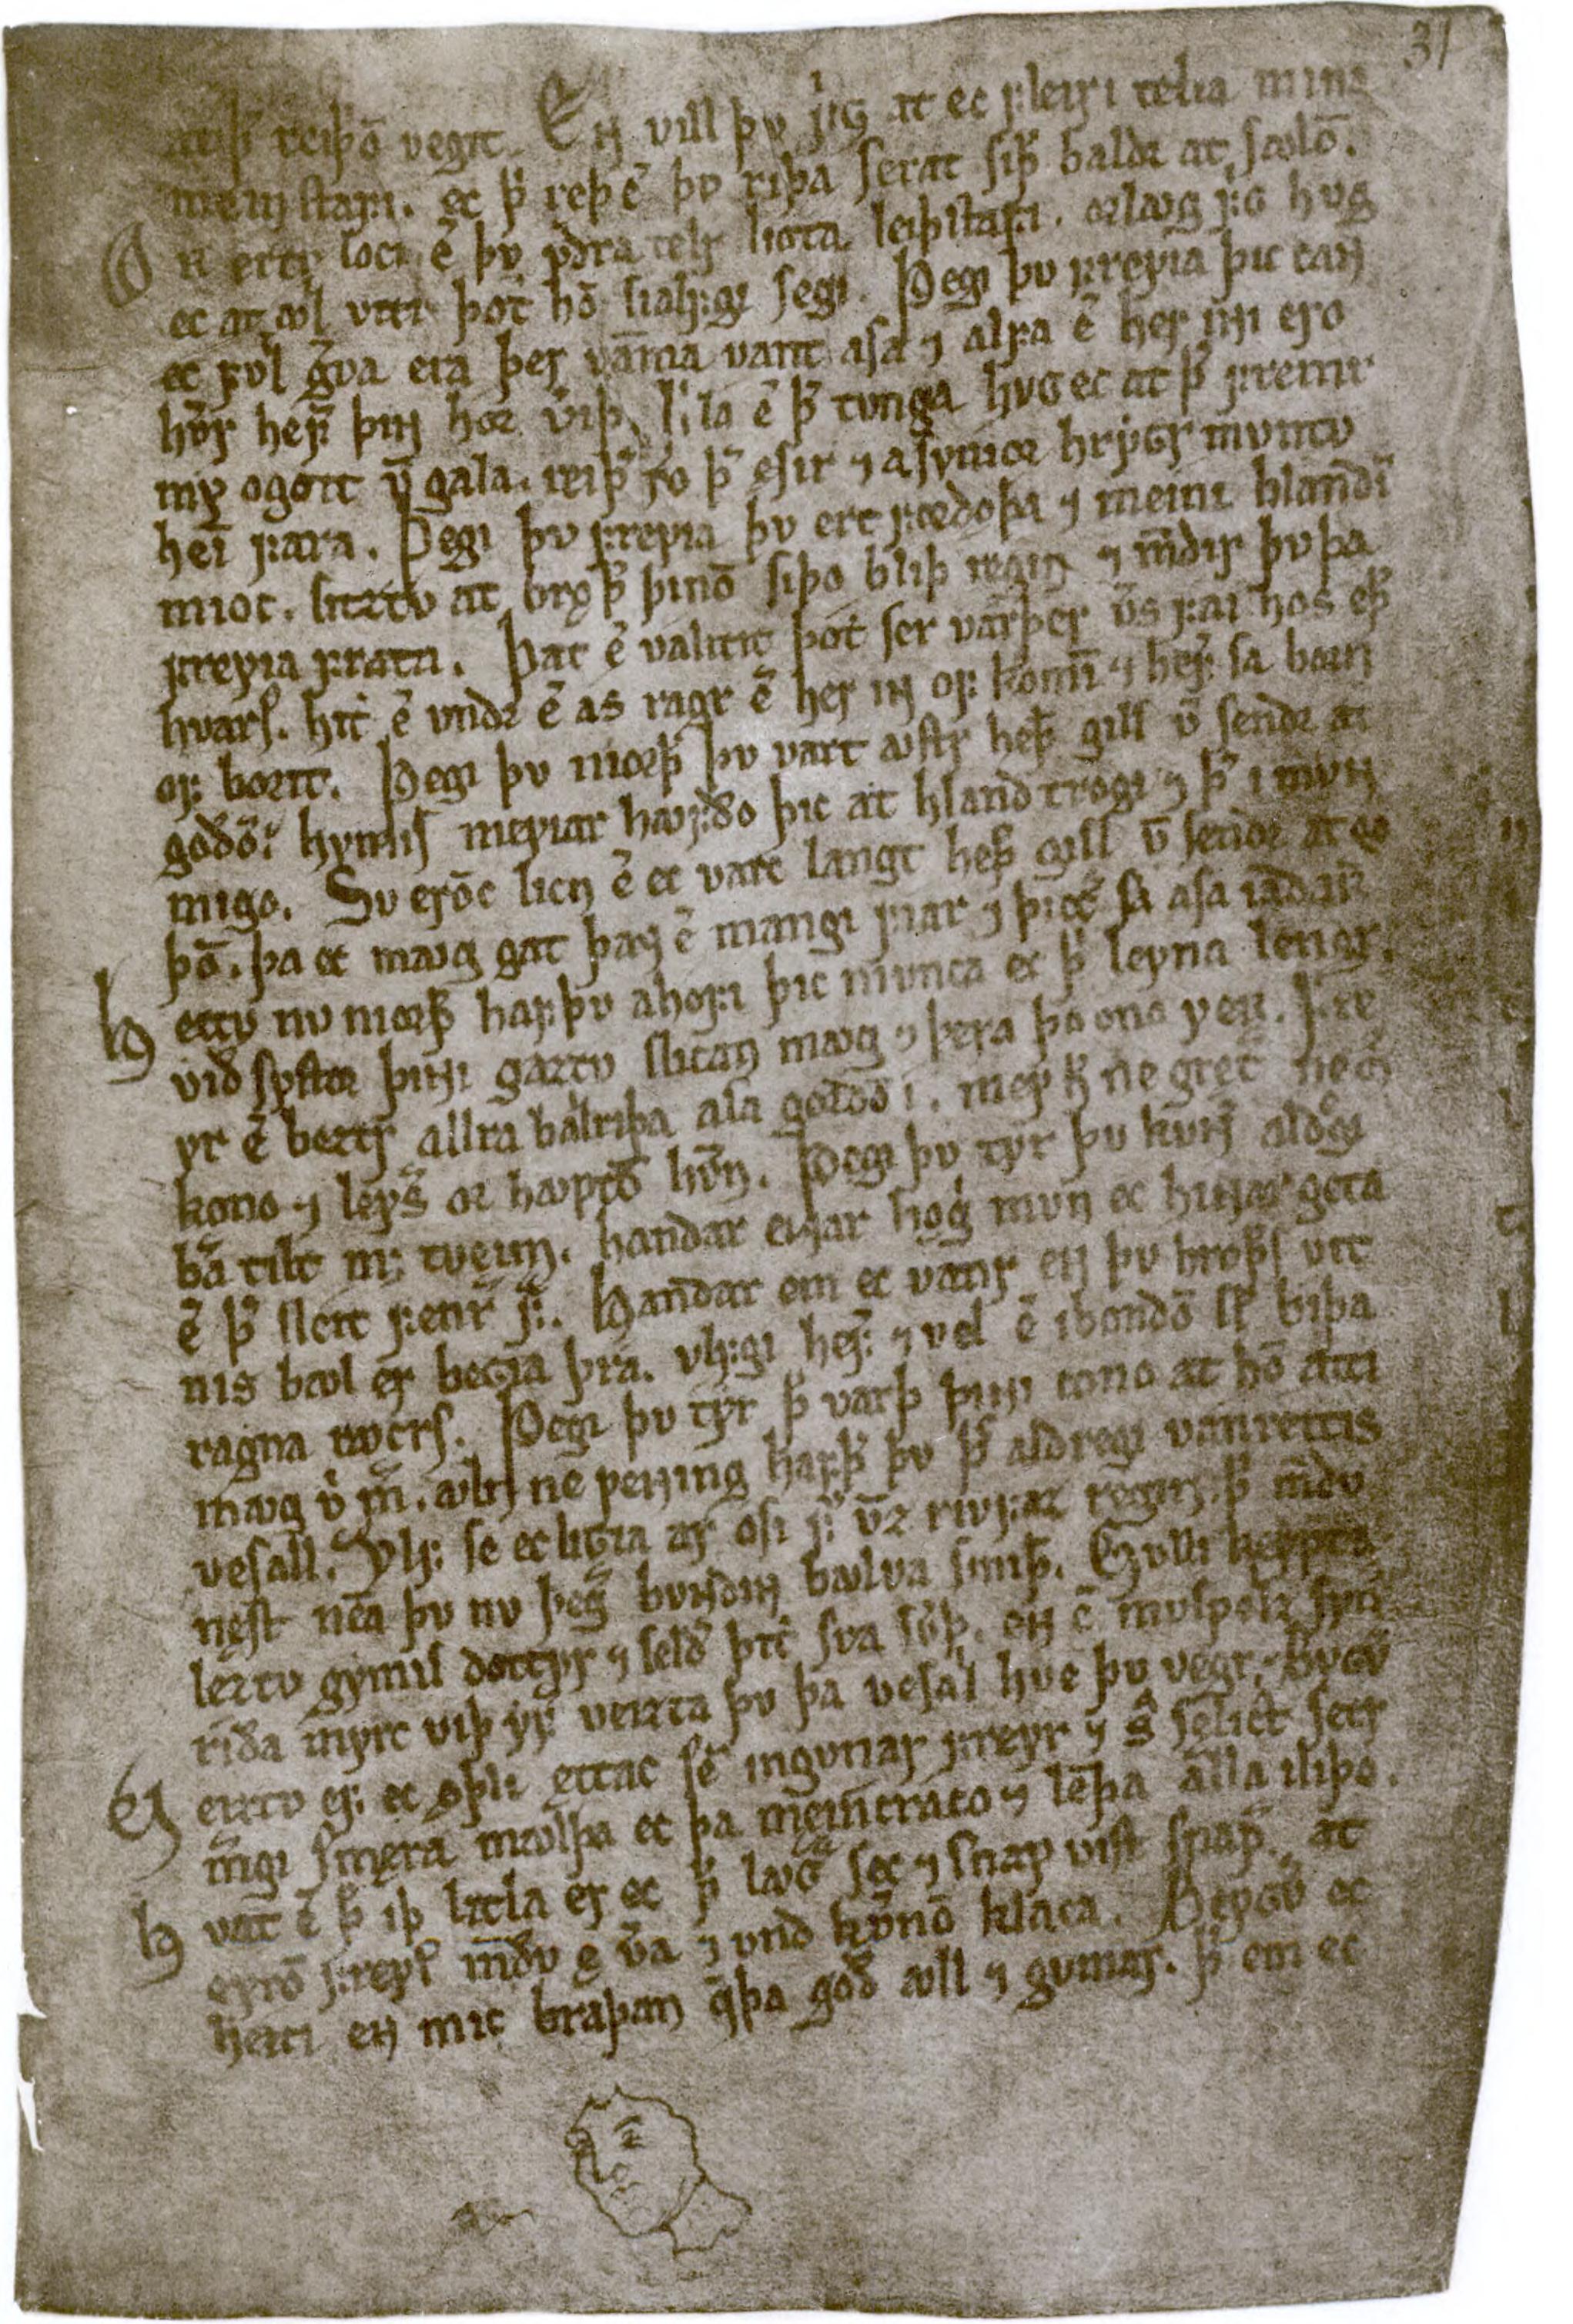 31
at þ̄ reiþō vegit. En vill þv friɢ at ec fleiri telia mina
meinstafi. ec þ̄ reþ ē þv riþa serat siþ̄ baldr at sꜹlō.
Ꜹr ertv loci ē þv yðra telr liota leiþstafi. ørlꜹg friɢ hvg
ec at ꜹl viti þot hō sialfgi segi. Þegi þv freyia þic can
ec fvl gꝟva era þer vāma vant asa ⁊ alfa ē her ini ero
hꝟr hef̄ þin hór v̄iþ. Fla ē þ̄ tvnga hyɢ ec at þ̄ fremr
myn ogott v̄ gala. reiþ̄ ro þ̄ ęsir ⁊ asynior hrygr mvntv
heī fara. Þegi þv freyia þv ert fordeþa ⁊ meini blandī
mioc. sitztv at brǫþ̄ þinō siþo bliþ regin ⁊ m̄dir þv þa
freyia frata. Þat ē valitit þot ser varþer v̄s fái hós eþ̄
hvars. hitt ē vndr ē áss ragr ē her in of komī ⁊ hef̄ sa born
of borit. Þegi þv niorþ̄ þv vart ꜹstr heþ̄ gisl v̄ sendr at
goðō. hymis meyiar hꜹfðo þic at hland trogi ⁊ þ̄ i mvn
migo. Sv erōc licn ē ec varc langt heþ̄ gisl v̄ sendr at go
þō. þa ec mꜹg gat þan ē mangi fiar ⁊ þicc̄ sa asa iaðarr
Hettv nv niorþ̄ haf þv a hofi þic mvnca ec þ̄ leyna lengr.
við systor þinni gaztv slican mꜹg ⁊ þera þo ono verr. Fre
yr ē beztr allra ballriþa asa gorðō i. mey h̄ ne gręt̄ ne m̄
kono ⁊ leys̄ or hꜹptō hv̄n. Þegi þv tyr þv kvnn̄ aldregi
b̄a tilt m; tveim. handar ennar hǫgri mvn ec hinnar geta
ē þ̄ sleit fenrir f̄. Handar em ec vanr en þv hroþrs vit
nis bꜹl er beggia þrá. vlfgi hef̄ ⁊ vel ē i bondō sc̄ biþa
ragna rꜹcrs. Þegi þv tyr þ̄ varþ þinni kono at hō átti
mꜹg v̄ m̄. ꜹln ne penning hafþ̄ þv þ̄ aldregi vanrettis
vesall. Vlf se ec ligia ár osi f̄ v̄z rivfaz regin. þ̄ m̄dv
nęst nēa þv nv þeḡ bvndin bꜹlva smiþ̄. Gvlli keypta
leztv gymis dottvr ⁊ seld̄ þitt sva sv̄þ. en ē mvspellz syn̄
riða myrc viþ yf̄ veizta þv þa vesall hve þv vegr. Byɢv̄
Ef ec ǫþli ęttac sē ingvnar freyr ⁊ s̄ sęlict setr
m̄gi smęra mꜹlþa ec þa meincraco ⁊ lēþa alla i liþo.
Hvat ē þ̄ iþ litla er ec þ̄ lꜹgra sec ⁊ snap vist snap̄. at
eyrō freys m̄dv ę v̄a ⁊ vnd kvernō klaca. Beyɢv̄ ec
heiti en mic braþan q̄þa goð ꜹll ⁊ gvmar. þ̄ em ec